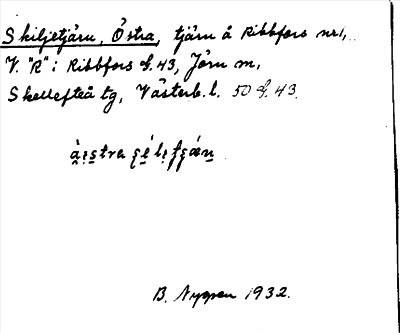 Skiljetjärn, Östra, tjärn å Ribbfors nr 1,
V. "R" i Ribbfors S. 43, Jörn m,
Skellefteå tg, Västerb. l. 50 S. 43.
B. Nygren 1932.